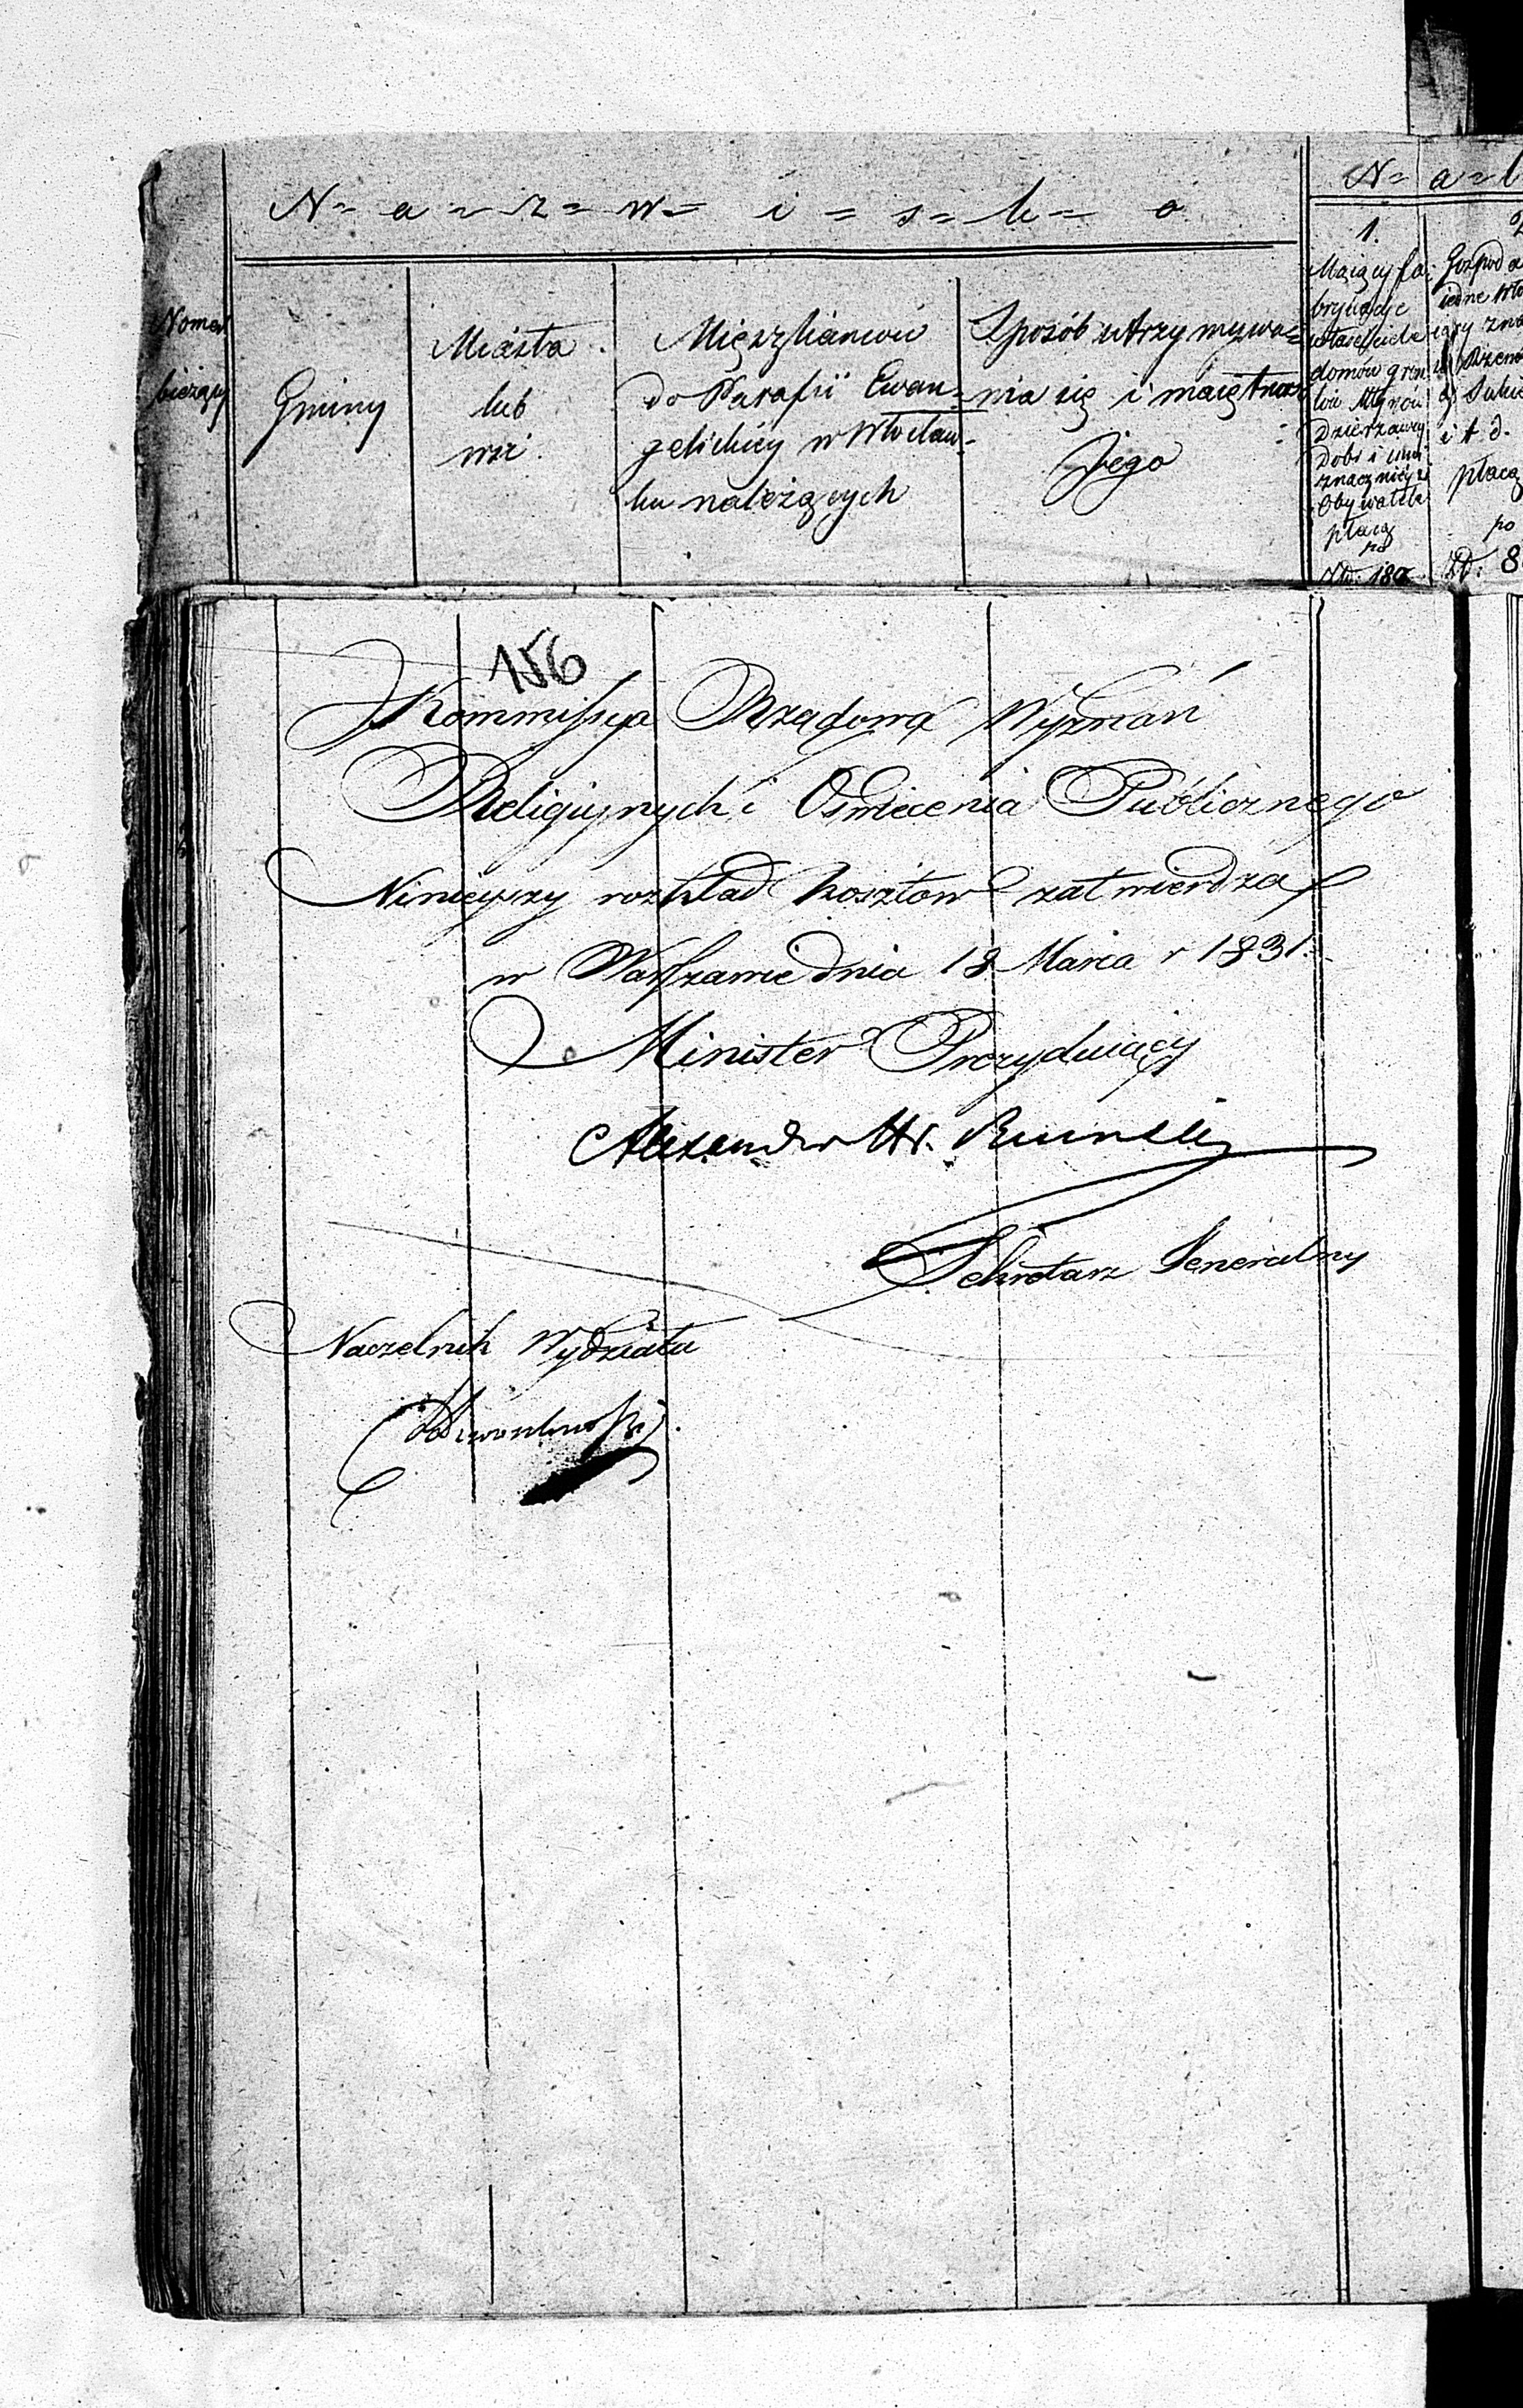 N = a = z = w = i = s = k = o
N = a = l
Numer
bieżący
Gminy
Miasta
lub
wsi
Mięszkańców
do Parafii Ewan=
gelickiey w Włocław=
ku należących
Sposób utrzymywa=
nia się i maiątek
Jego
1.
Maiący fa=
brykacye
właściciele
domów grun
tów Młynów
Dzierżawcy
Dobr i inni
znacznieysi
Obywatele
płacą
po
Złp. 18
Gospoda
iedne Wło
z Sukie
i t d.
płacą
po
Zł: 8
156
Kommissya Rządowa Wyznań
Religiynych i Oświecenia Publicznego
Ninieyszy rozkład kosztów zatwierdza
w Warszawie dnia 18 Marca r 1831.
Minister Prezyduiący
Alexander Hr.
Sekretarz Generalny
Naczelnik Wydziału